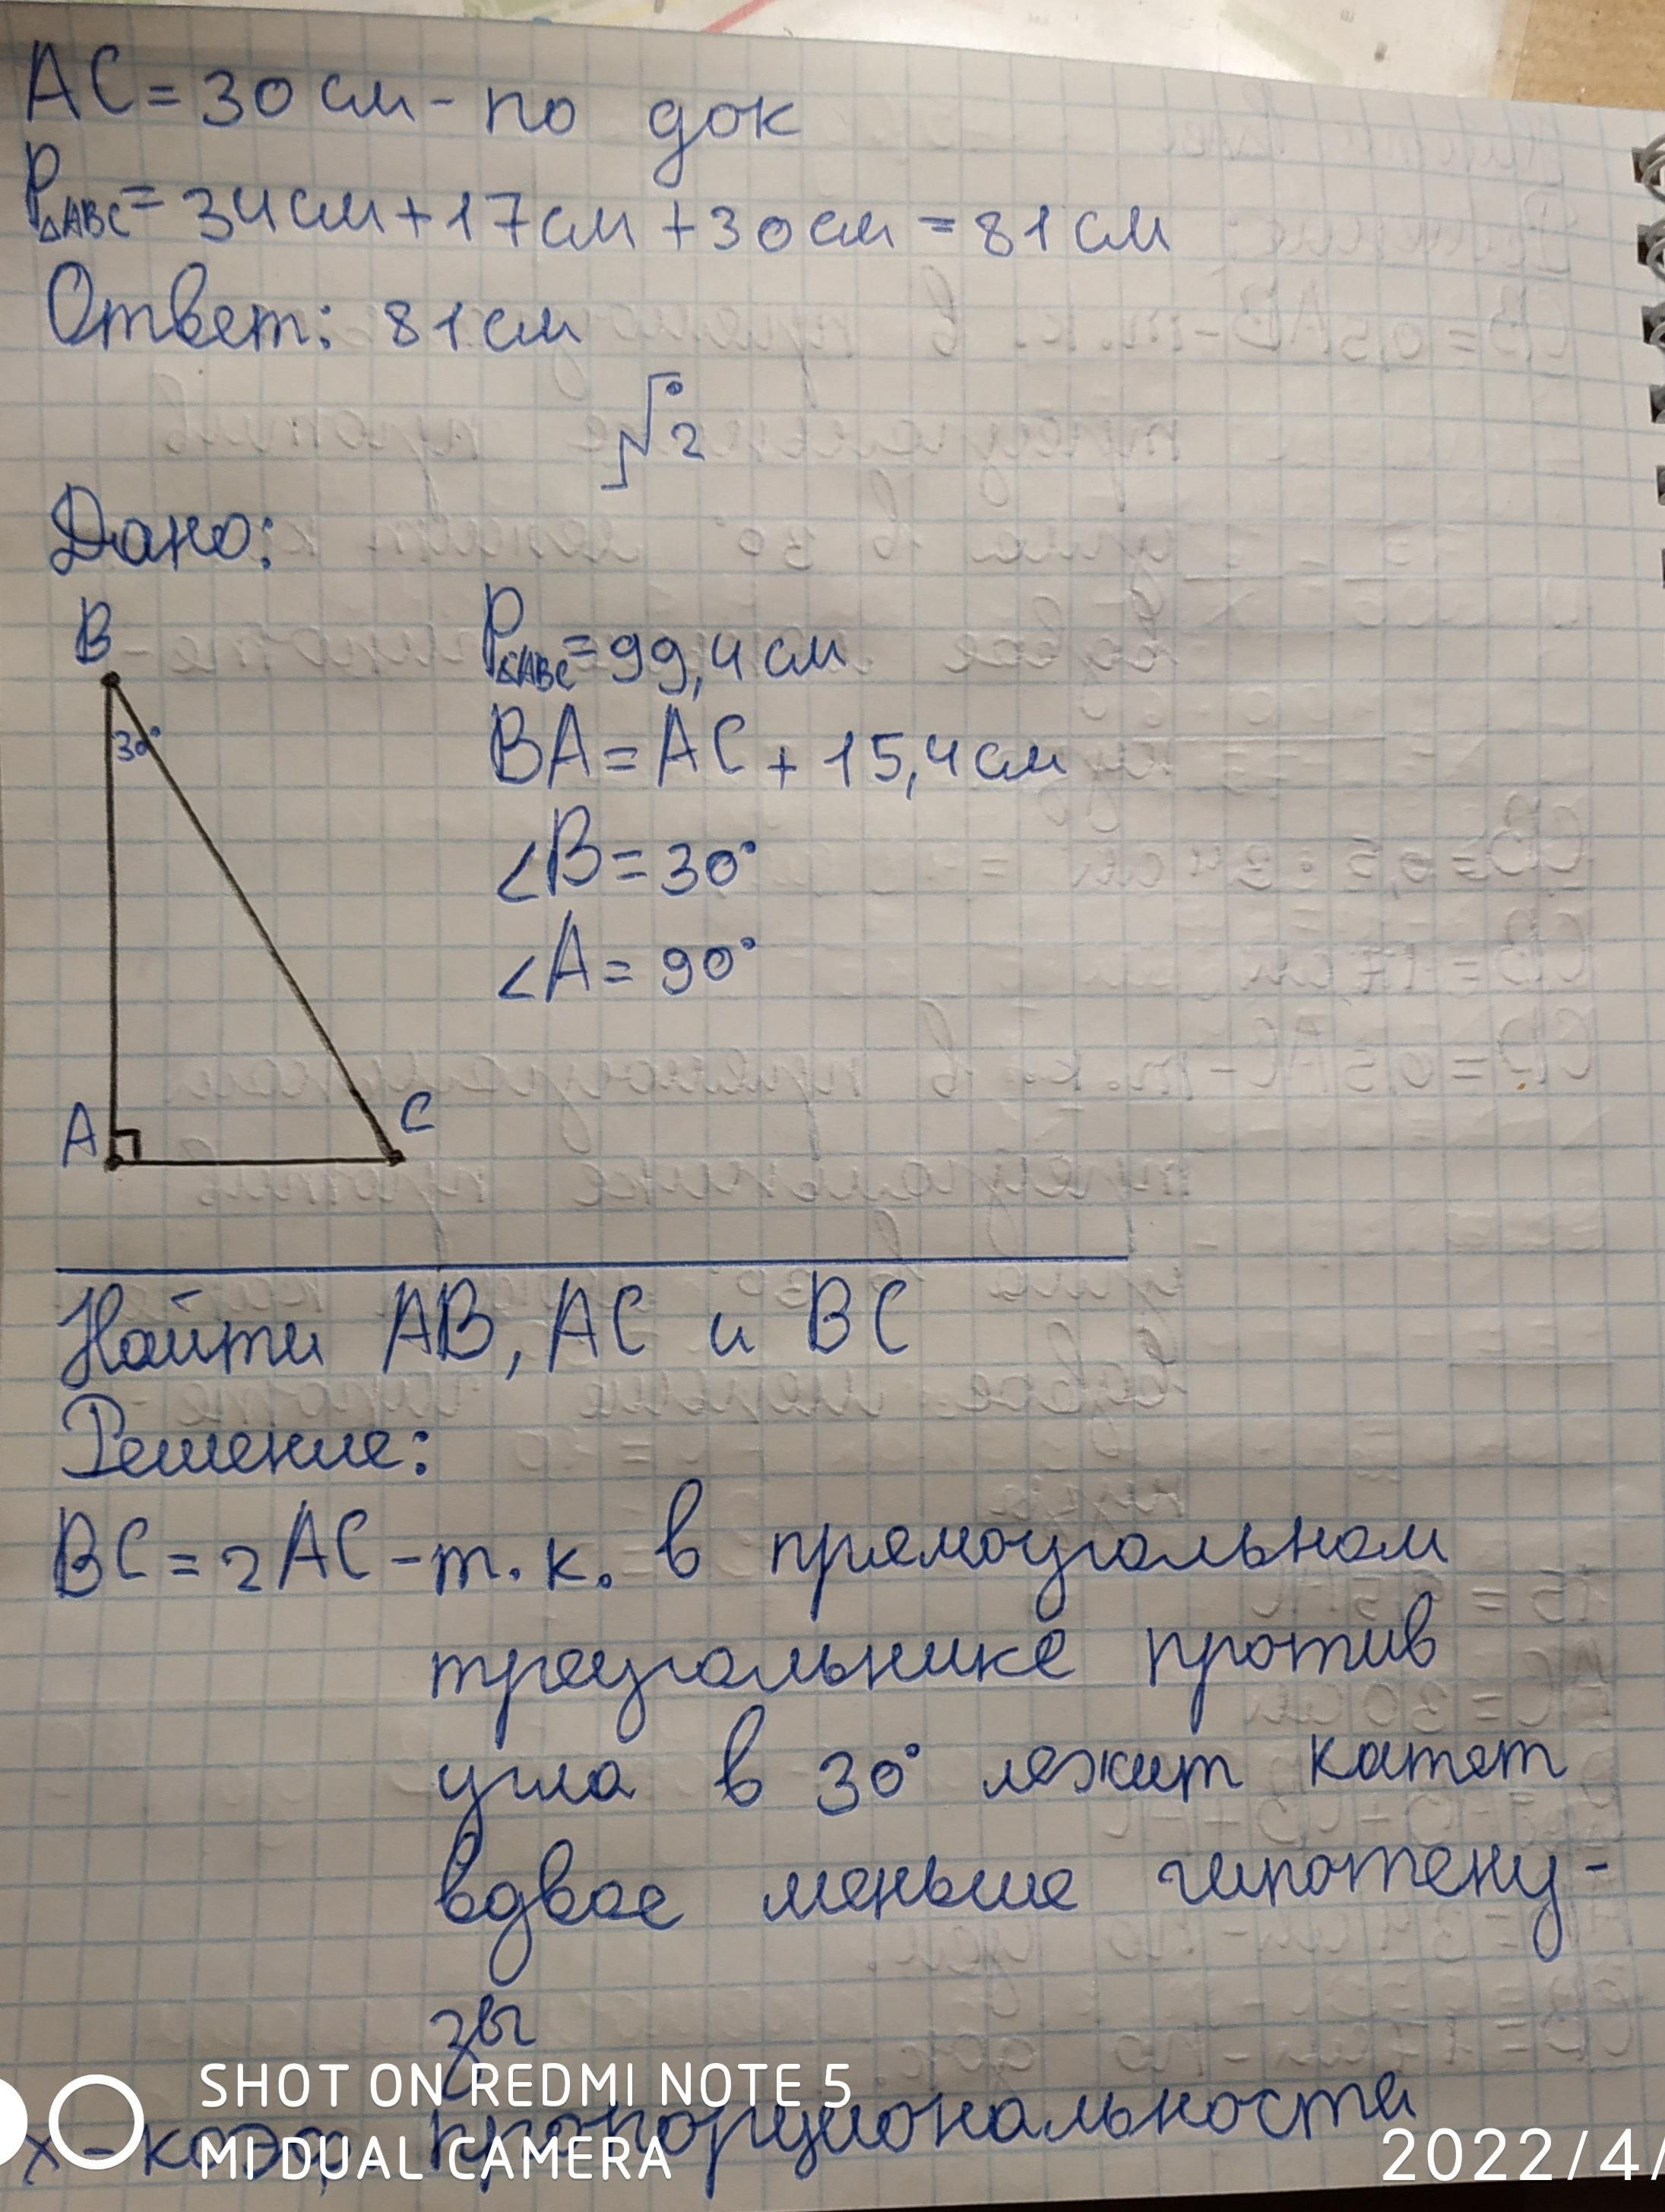 AC = 30 см - по док
P△ABC = 34 см + 17 см + 30 см = 81 см
Ответ: 81 см
№2
Дано:
B
P△ABC = 99,4 см
30°
BA = AC + 15,4 см
∠B = 30°
∠A = 90°
A
C
Найти AB, AC и BC
Решение:
BC = 2AC - т.к. в прямоугольном
треугольнике против
угла в 30° лежит катет
вдвое меньше гипотену-
зы
x - коэф. пропорциональности
SHOT ON REDMI NOTE 5
MI DUAL CAMERA
2022/4/